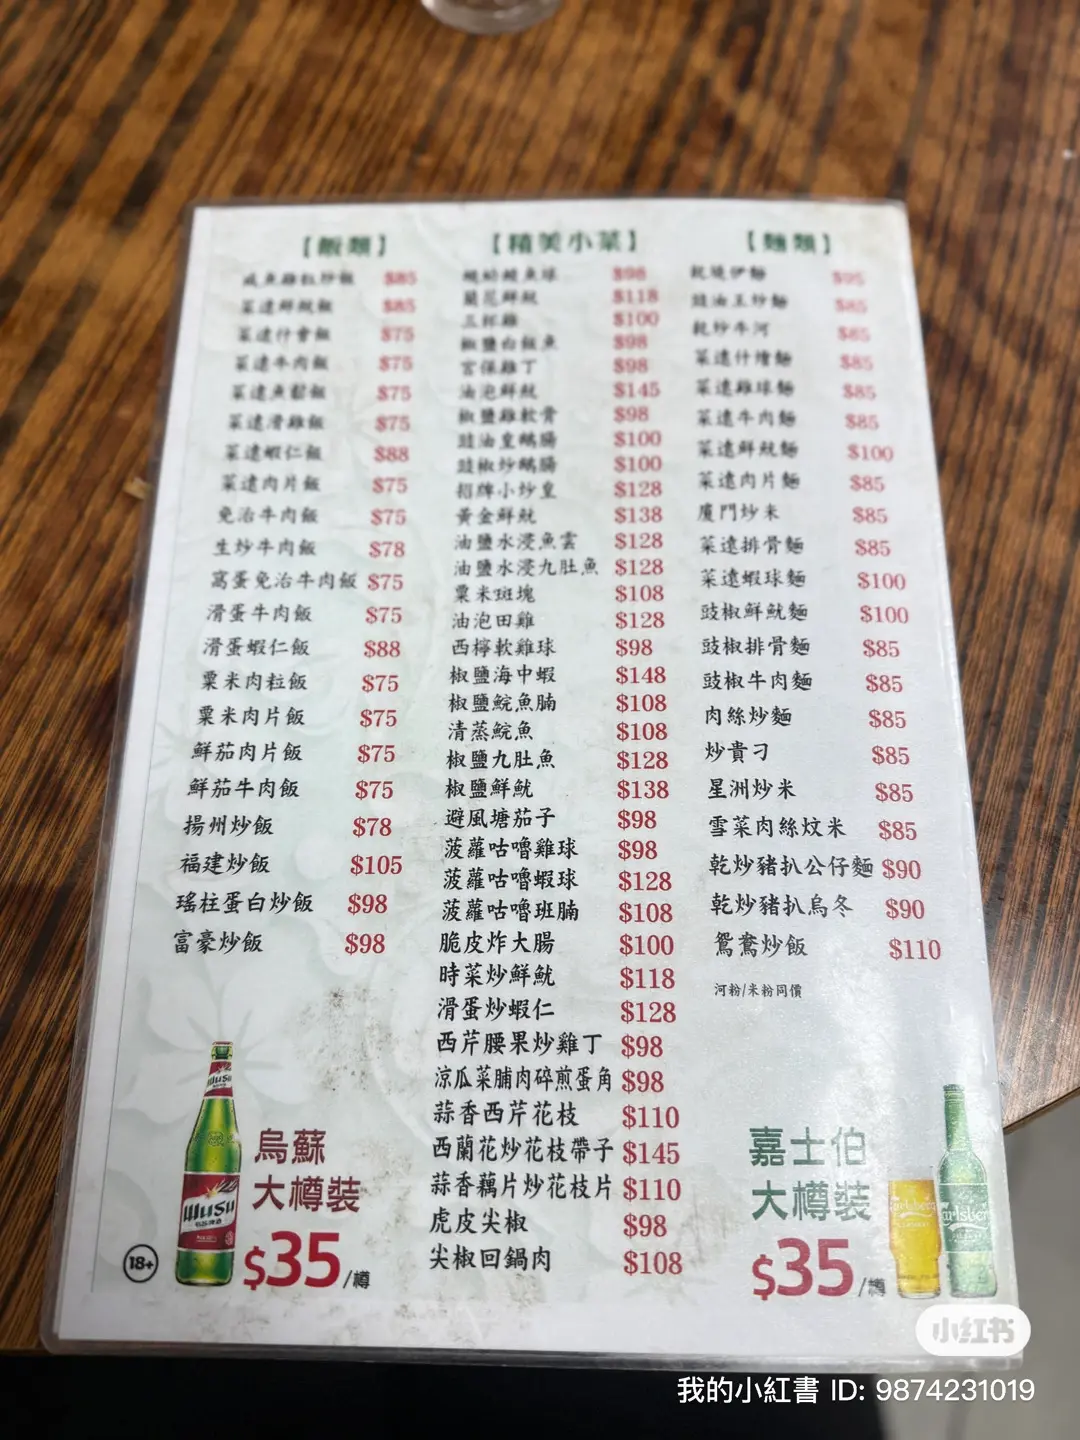 【飯類】
咸魚雞粒炒飯 $85
菜遠鮮魷飯 $85
菜遠什會飯 $75
菜遠牛肉飯 $75
菜遠魚鬆飯 $75
菜遠滑雞飯 $75
菜遠蝦仁飯 $88
菜遠肉片飯 $75
免治牛肉飯 $75
生炒牛肉飯 $78
窩蛋免治牛肉飯 $75
滑蛋牛肉飯 $75
滑蛋蝦仁飯 $88
粟米肉粒飯 $75
粟米肉片飯 $75
鮮茄肉片飯 $75
鮮茄牛肉飯 $75
揚州炒飯 $78
福建炒飯 $105
瑤柱蛋白炒飯 $98
富豪炒飯 $98
【精美小菜】
魚球 $98
蘭花鮮魷 $118
三杯雞 $100
椒鹽白飯魚 $98
宮保雞丁 $98
油泡鮮魷 $145
椒鹽雞軟骨 $98
豉油皇鵝腸 $100
豉椒炒鵝腸 $100
招牌小炒皇 $128
黃金鮮魷 $138
油鹽水浸魚雲 $128
油鹽水浸九肚魚 $128
粟米斑塊 $108
油泡田雞 $128
西檸軟雞球 $98
椒鹽海中蝦 $148
椒鹽鯇魚腩 $108
清蒸鯇魚 $108
椒鹽九肚魚 $128
椒鹽鮮魷 $138
避風塘茄子 $98
菠蘿咕嚕雞球 $98
菠蘿咕嚕蝦球 $128
菠蘿咕嚕班腩 $108
脆皮炸大腸 $100
時菜炒鮮魷 $118
滑蛋炒蝦仁 $128
西芹腰果炒雞丁 $98
涼瓜菜脯肉碎煎蛋角 $98
蒜香西芹花枝 $110
西蘭花炒花枝帶子 $145
蒜香藕片炒花枝片 $110
虎皮尖椒 $98
尖椒回鍋肉 $108
【麵類】
乾燒伊麵 $95
豉油王炒麵 $85
乾炒牛河 $85
菜遠什燴麵 $85
菜遠雞球麵 $85
菜遠牛肉麵 $85
菜遠鮮魷麵 $100
菜遠肉片麵 $85
廈門炒米 $85
菜遠排骨麵 $85
菜遠蝦球麵 $100
豉椒鮮魷麵 $100
豉椒排骨麵 $85
豉椒牛肉麵 $85
肉絲炒麵 $85
炒貴刁 $85
星洲炒米 $85
雪菜肉絲炆米 $85
乾炒豬扒公仔麵 $90
乾炒豬扒烏冬 $90
鴛鴦炒飯 $110
河粉/米粉同價
18+
WuSu
WuSu
烏蘇
大樽裝
$35/樽
嘉士伯
大樽裝
$35/樽
Carlsberg
小红书
我的小紅書 ID: 9874231019